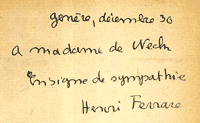 genève, décembre 30
A madame de Weck
En signe de sympathie
Henri Ferrare